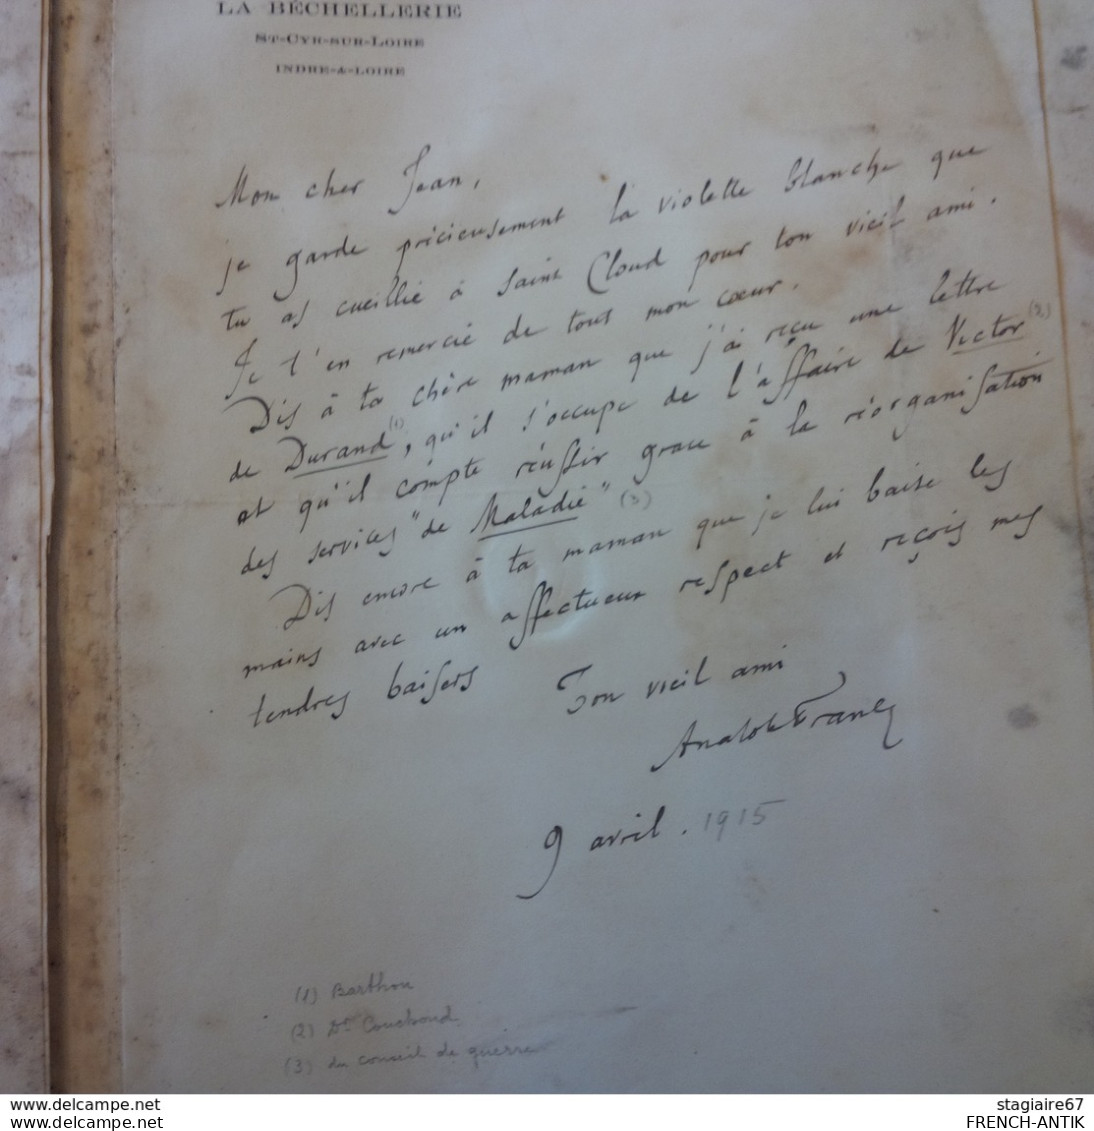 LA BÉCHELLERIE
ST-CYR-SUR-LOIRE
INDRE-&-LOIRE
Mon cher Jean,
je garde précieusement la violette blanche que
tu as cueillie à Saint Cloud pour ton vieil ami.
Je t'en remercie de tout mon cœur.
Dis à ta chère maman que j'ai reçu une lettre
de Durand (1), qu'il s'occupe de l'affaire de Victor (2)
et qu'il compte réussir grace à la réorganisation
des services "de Maladie" (3)
Dis encore à ta maman que je lui baise les
mains avec un affectueux respect et reçois mes
tendres baisers
Ton vieil ami
Anatole France
9 avril. 1915
(1) Barthou
(2) Dr Couchoud
(3) du conseil de guerre
www.delcampe.net
www.delcampe.net
stagiaire67
FRENCH-ANTIK